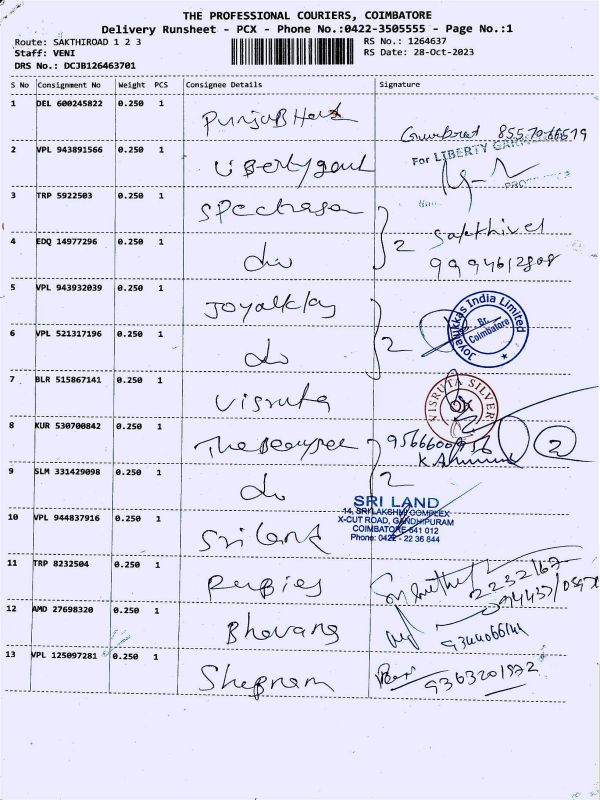 THE PROFESSIONAL COURIERS, COIMBATORE
Delivery Runsheet - PCX - Phone No.:0422-3505555 - Page No.:1
Route: SAKTHIROAD 1 2 3
RS No.: 1264637
Staff: VENI
RS Date: 28-Oct-2023
DRS No.: DCJB126463701
S No Consignment No Weight PCS Consignee Details Signature
1 DEL 600245822 0.250 1
85570 66519
2 VPL 943891566 0.250 1 Liberty
For LIBERTY
3 TRP 5922503 0.250 1
2 Sakthivel
4 EDQ 14977296 0.250 1 do
9994612808
5 VPL 943932039 0.250 1
Joyalukkas India Limited
Br.
Coimbatore
6 VPL 521317196 0.250 1 do
2
7 BLR 515867141 0.250 1 Visruta
VISRUTA SILVER
8 KUR 530700842 0.250 1
2
9 SLM 331429098 0.250 1 do
2
SRI LAND
14, SRI LAKSHMI COMPLEX
X-CUT ROAD, GANDHIPURAM
COIMBATORE 641 012
Phone: 0422 - 22 36 844
10 VPL 944837916 0.250 1 Sriland
11 TRP 8232504 0.250 1 Rubies
12 AMD 27698320 0.250 1
13 VPL 125097281 0.250 1 Shabnam
9363201972